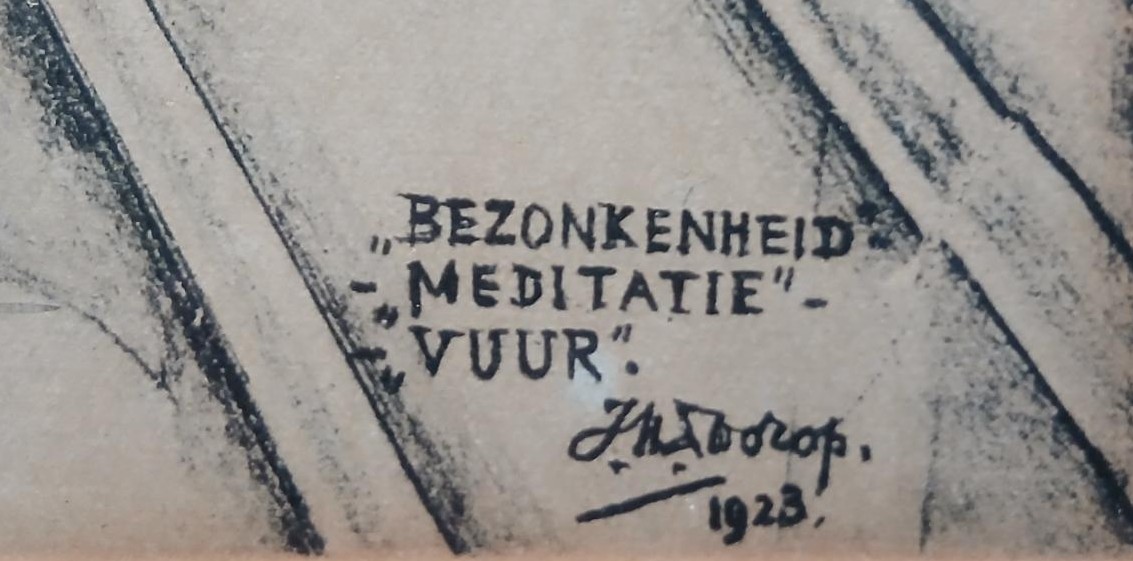 „BEZONKENHEID"
-„MEDITATIE"-
-„VUUR".
J.Th.Toorop.
1923.